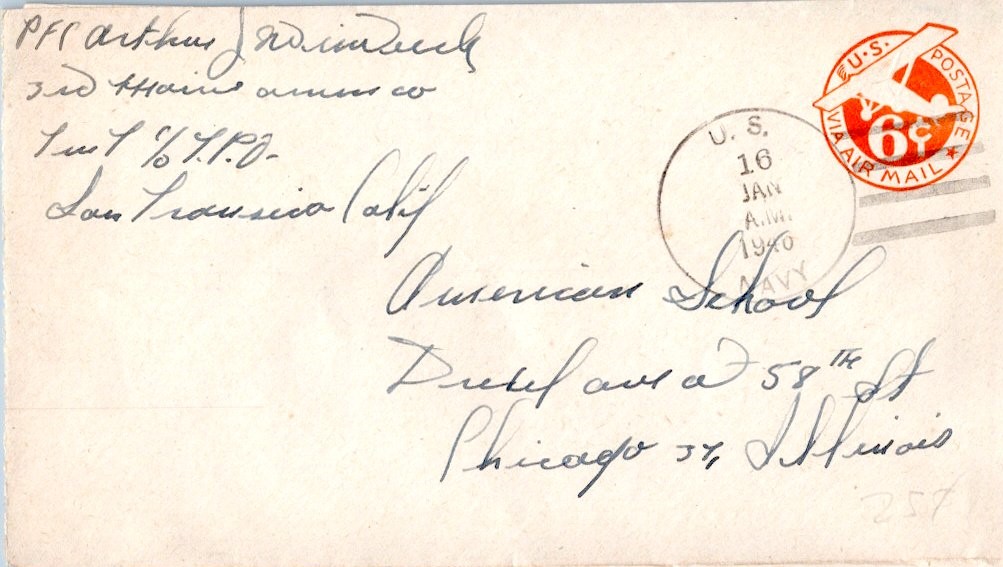 PFC Arthur J
3rd Marine ammo co
FMF c/o F.P.O.
San Fransico Calif
U.S. POSTAGE
VIA AIR MAIL
6¢
U. S.
16
JAN
A.M.
1946
NAVY
American School
Drexel ave at 58TH St
Chicago 37, Illinois
257